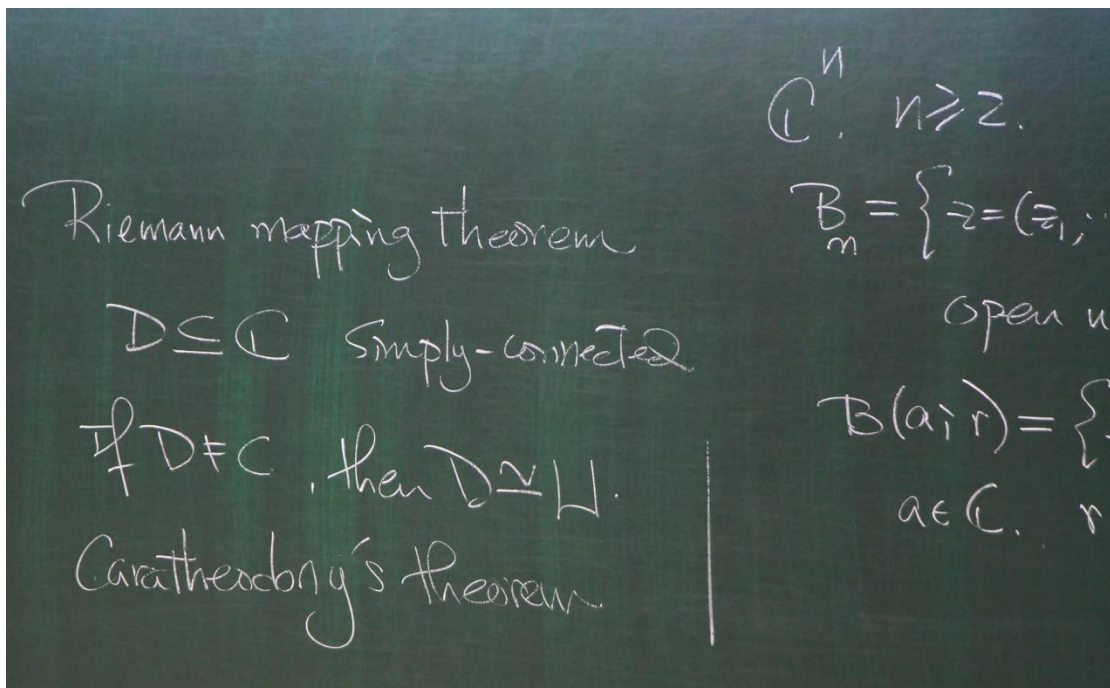 Riemann mapping theorem
D ⊆ ℂ simply-connected
If D ≠ C, then D ≃ U.
Caratheodory's theorem
ℂⁿ. n ≥ 2.
Bₙ = { z = (z₁,
open u
B(a; r) = {
a ∈ ℂ. r